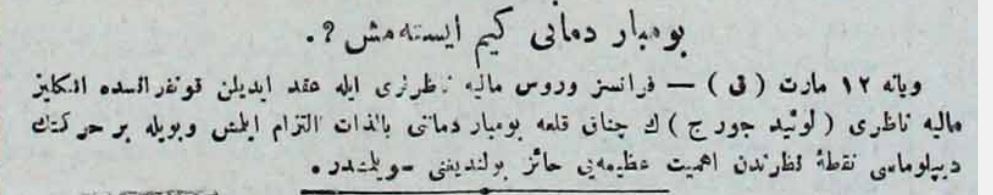 بومبار دمانی کیم ایسته‌مش ؟.
ویانه ١٢ مارت ( قی ) — فرانسز وروس مالیه نظرلری ایله عقد ایدیلن قونفرانسده انکلیز
مالیه ناظری ( لوئید جورج ) ك چناق قلعه بومبار دماننی بالذات التزام ایلمش وبویله بر حرکتك
دیپلوماسی نقطهٔ نظرندن اهمیت عظیمه‌یی حائز بولندیغنی سویلمشدر .